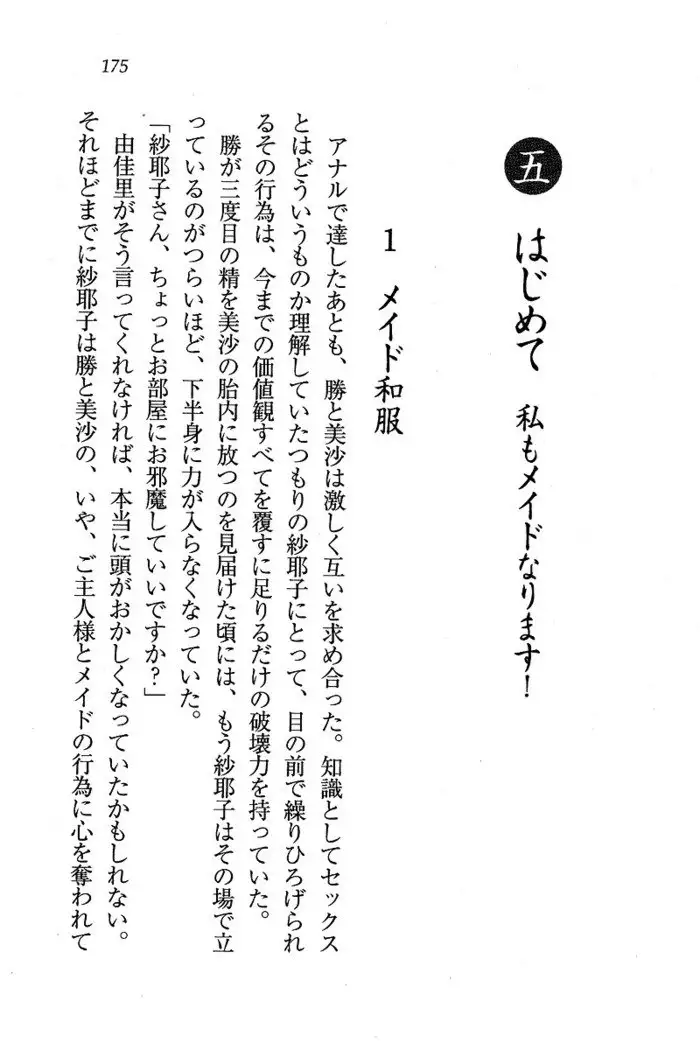 175
五 はじめて 私もメイドなります!
1 メイド和服
アナルで達したあとも、勝と美沙は激しく互いを求め合った。知識としてセックス
とはどういうものか理解していたつもりの紗耶子にとって、目の前で繰りひろげられ
るその行為は、今までの価値観すべてを覆すに足りるだけの破壊力を持っていた。
勝が三度目の精を美沙の胎内に放つのを見届けた頃には、もう紗耶子はその場で立
っているのがつらいほど、下半身に力が入らなくなっていた。
「紗耶子さん、ちょっとお部屋にお邪魔していいですか?」
由佳里がそう言ってくれなければ、本当に頭がおかしくなっていたかもしれない。
それほどまでに紗耶子は勝と美沙の、いや、ご主人様とメイドの行為に心を奪われて